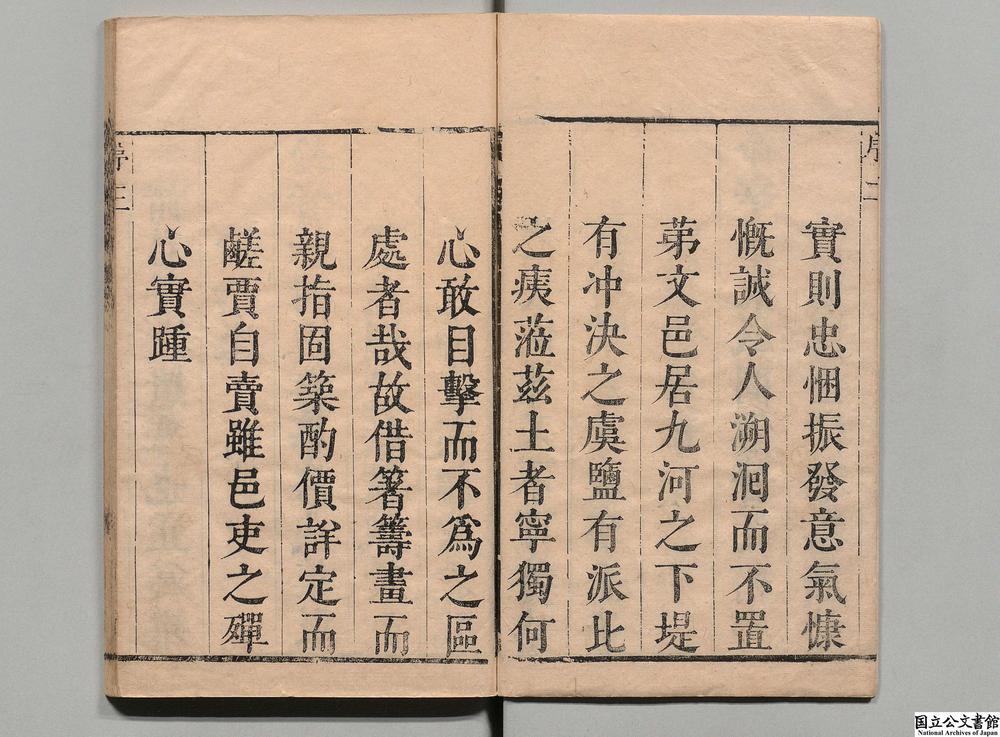 序二
實則忠悃振發意氣慷
慨誠令人溯洄而不置
苐文邑居九河之下堤
有冲決之虞鹽有派比
之痍蒞茲土者寧獨何
心敢目擊而不為之區
處者哉故借箸籌畫而
親指固築酌價詳定而
鹺賈自賣雖邑吏之殫
心實踵
序三
国立公文書館
National Archives of Japan